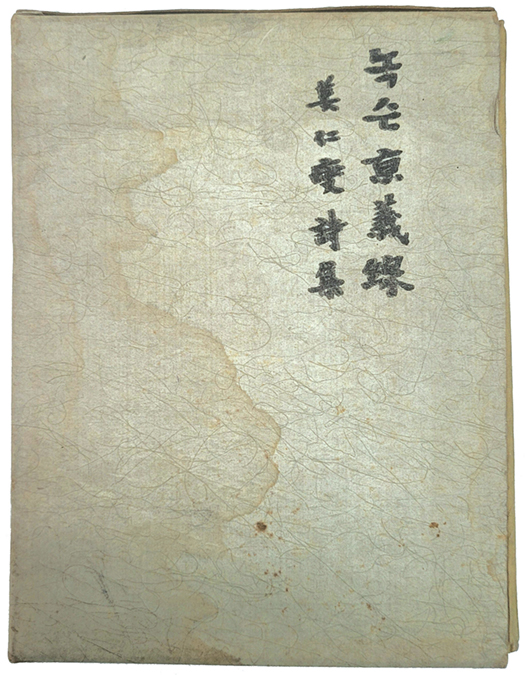 녹슨京義線
姜仁燮詩集